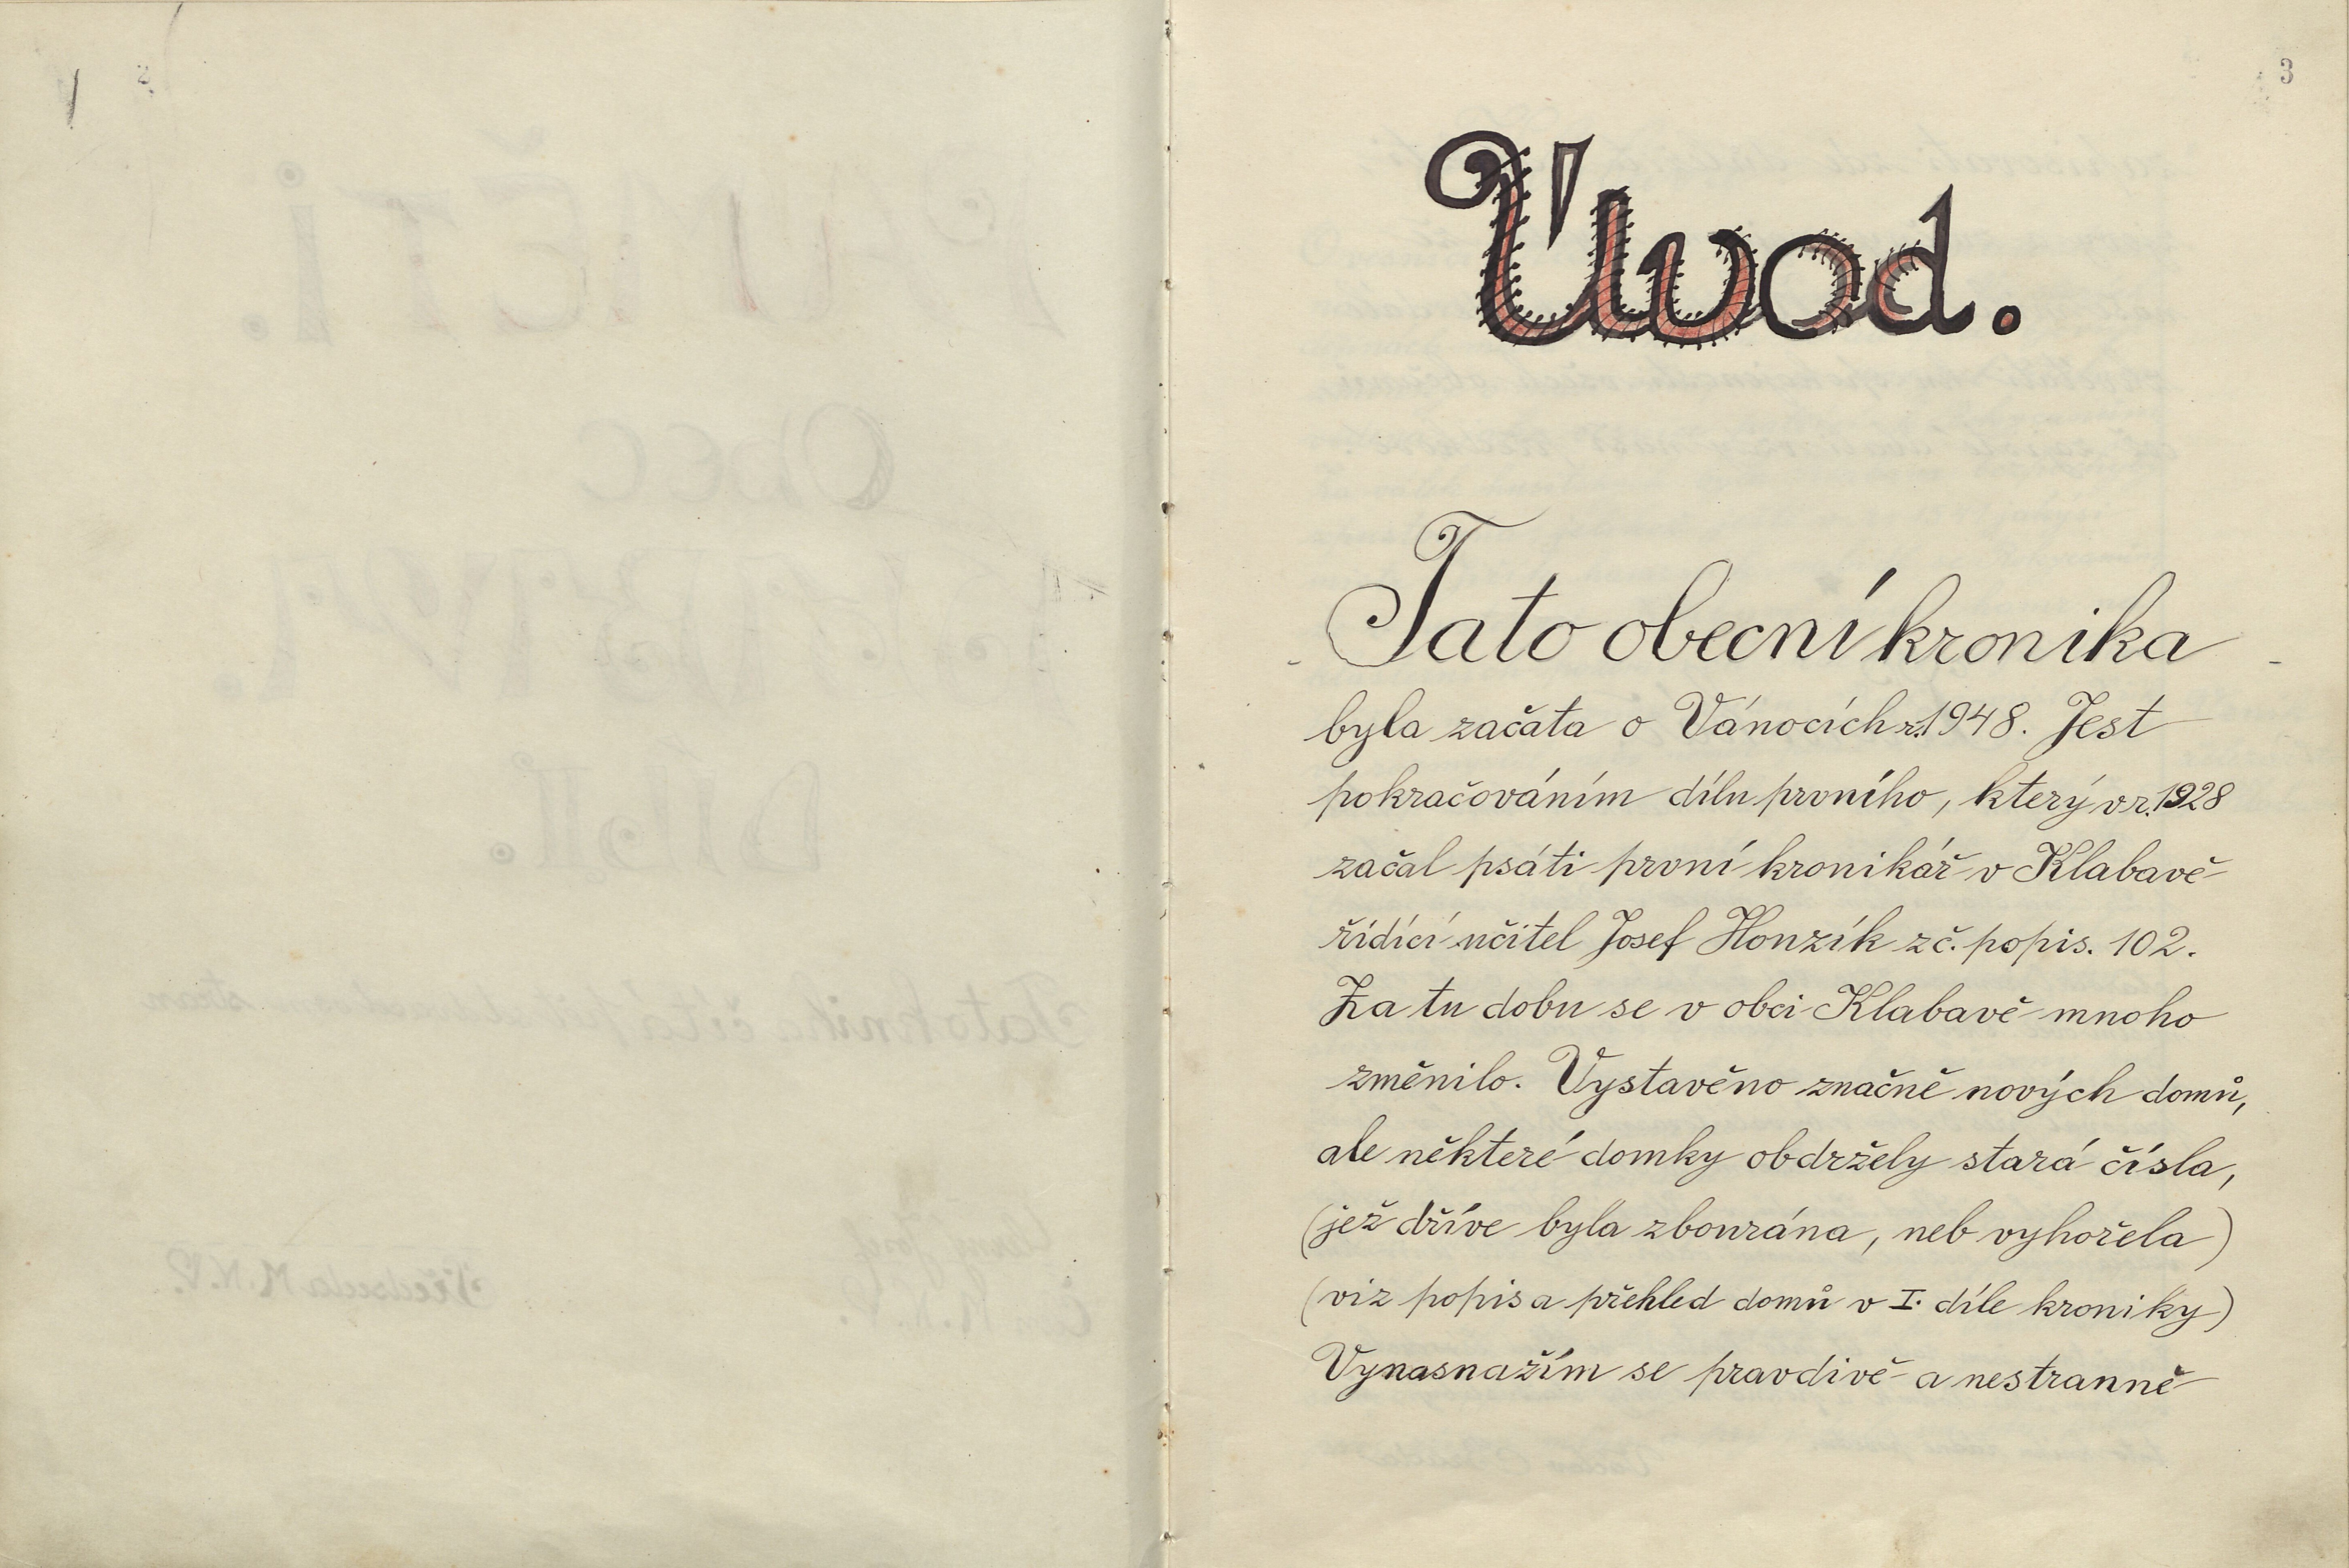 2
3
Úvod.
Tato obecní kronika
byla začata o Vánocích r.1948. Jest
pokračováním dílu prvního, který v r.1928
začal psáti první kronikář v Klabavě
řídící učitel Josef Honzík z č. popis. 102.
Za tu dobu se v obci Klabavě mnoho
změnilo. Vystavěno značně nových domů,
ale některé domky obdržely stará čísla,
(jež dříve byla zbourána, neb vyhořela)
(viz popis a přehled domů v I. díle kroniky)
Vynasnažím se pravdivě a nestranně